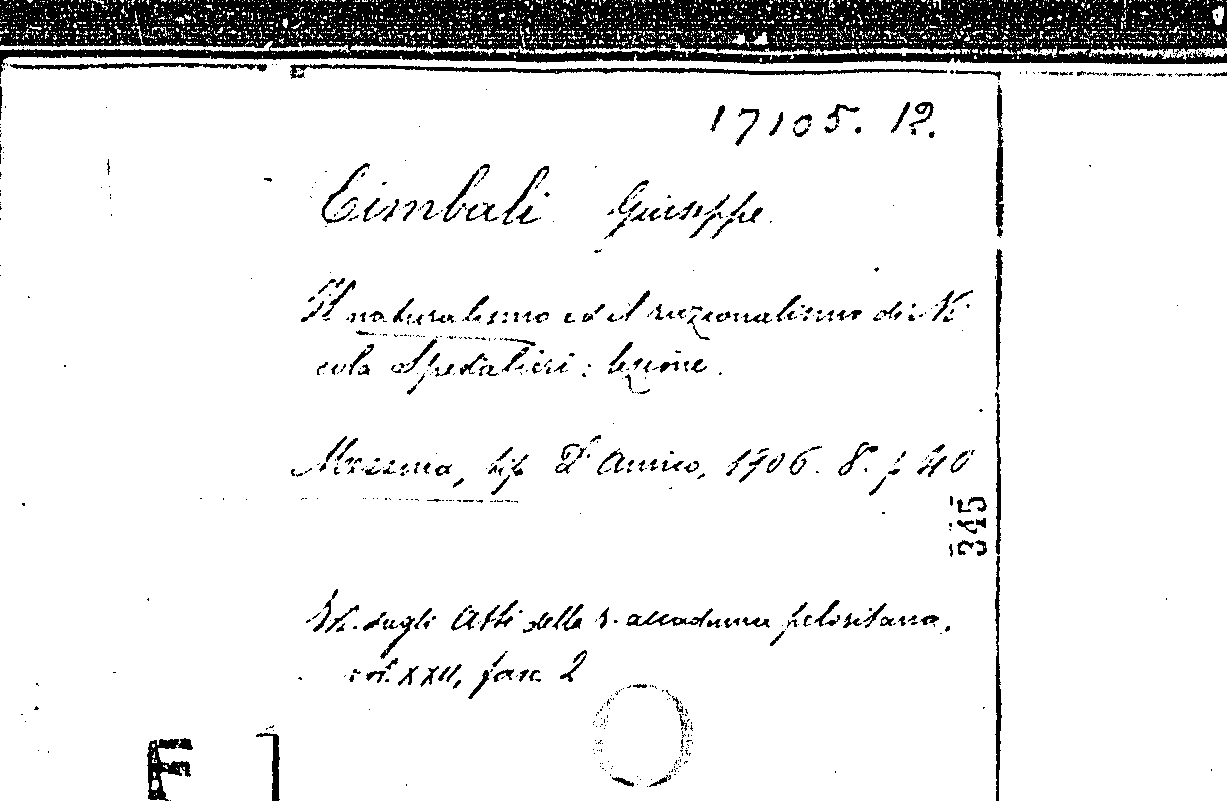 17105. 12.
Cimbali Giuseppe
Il naturalismo ed il razionalismo di Ni
cola Spedalieri: lezione.
Messina, tip D'Amico, 1906. 8.° p 40
345
Est. dagli Atti della r. accademia peloritana,
vol. XXII, fasc. 2
E